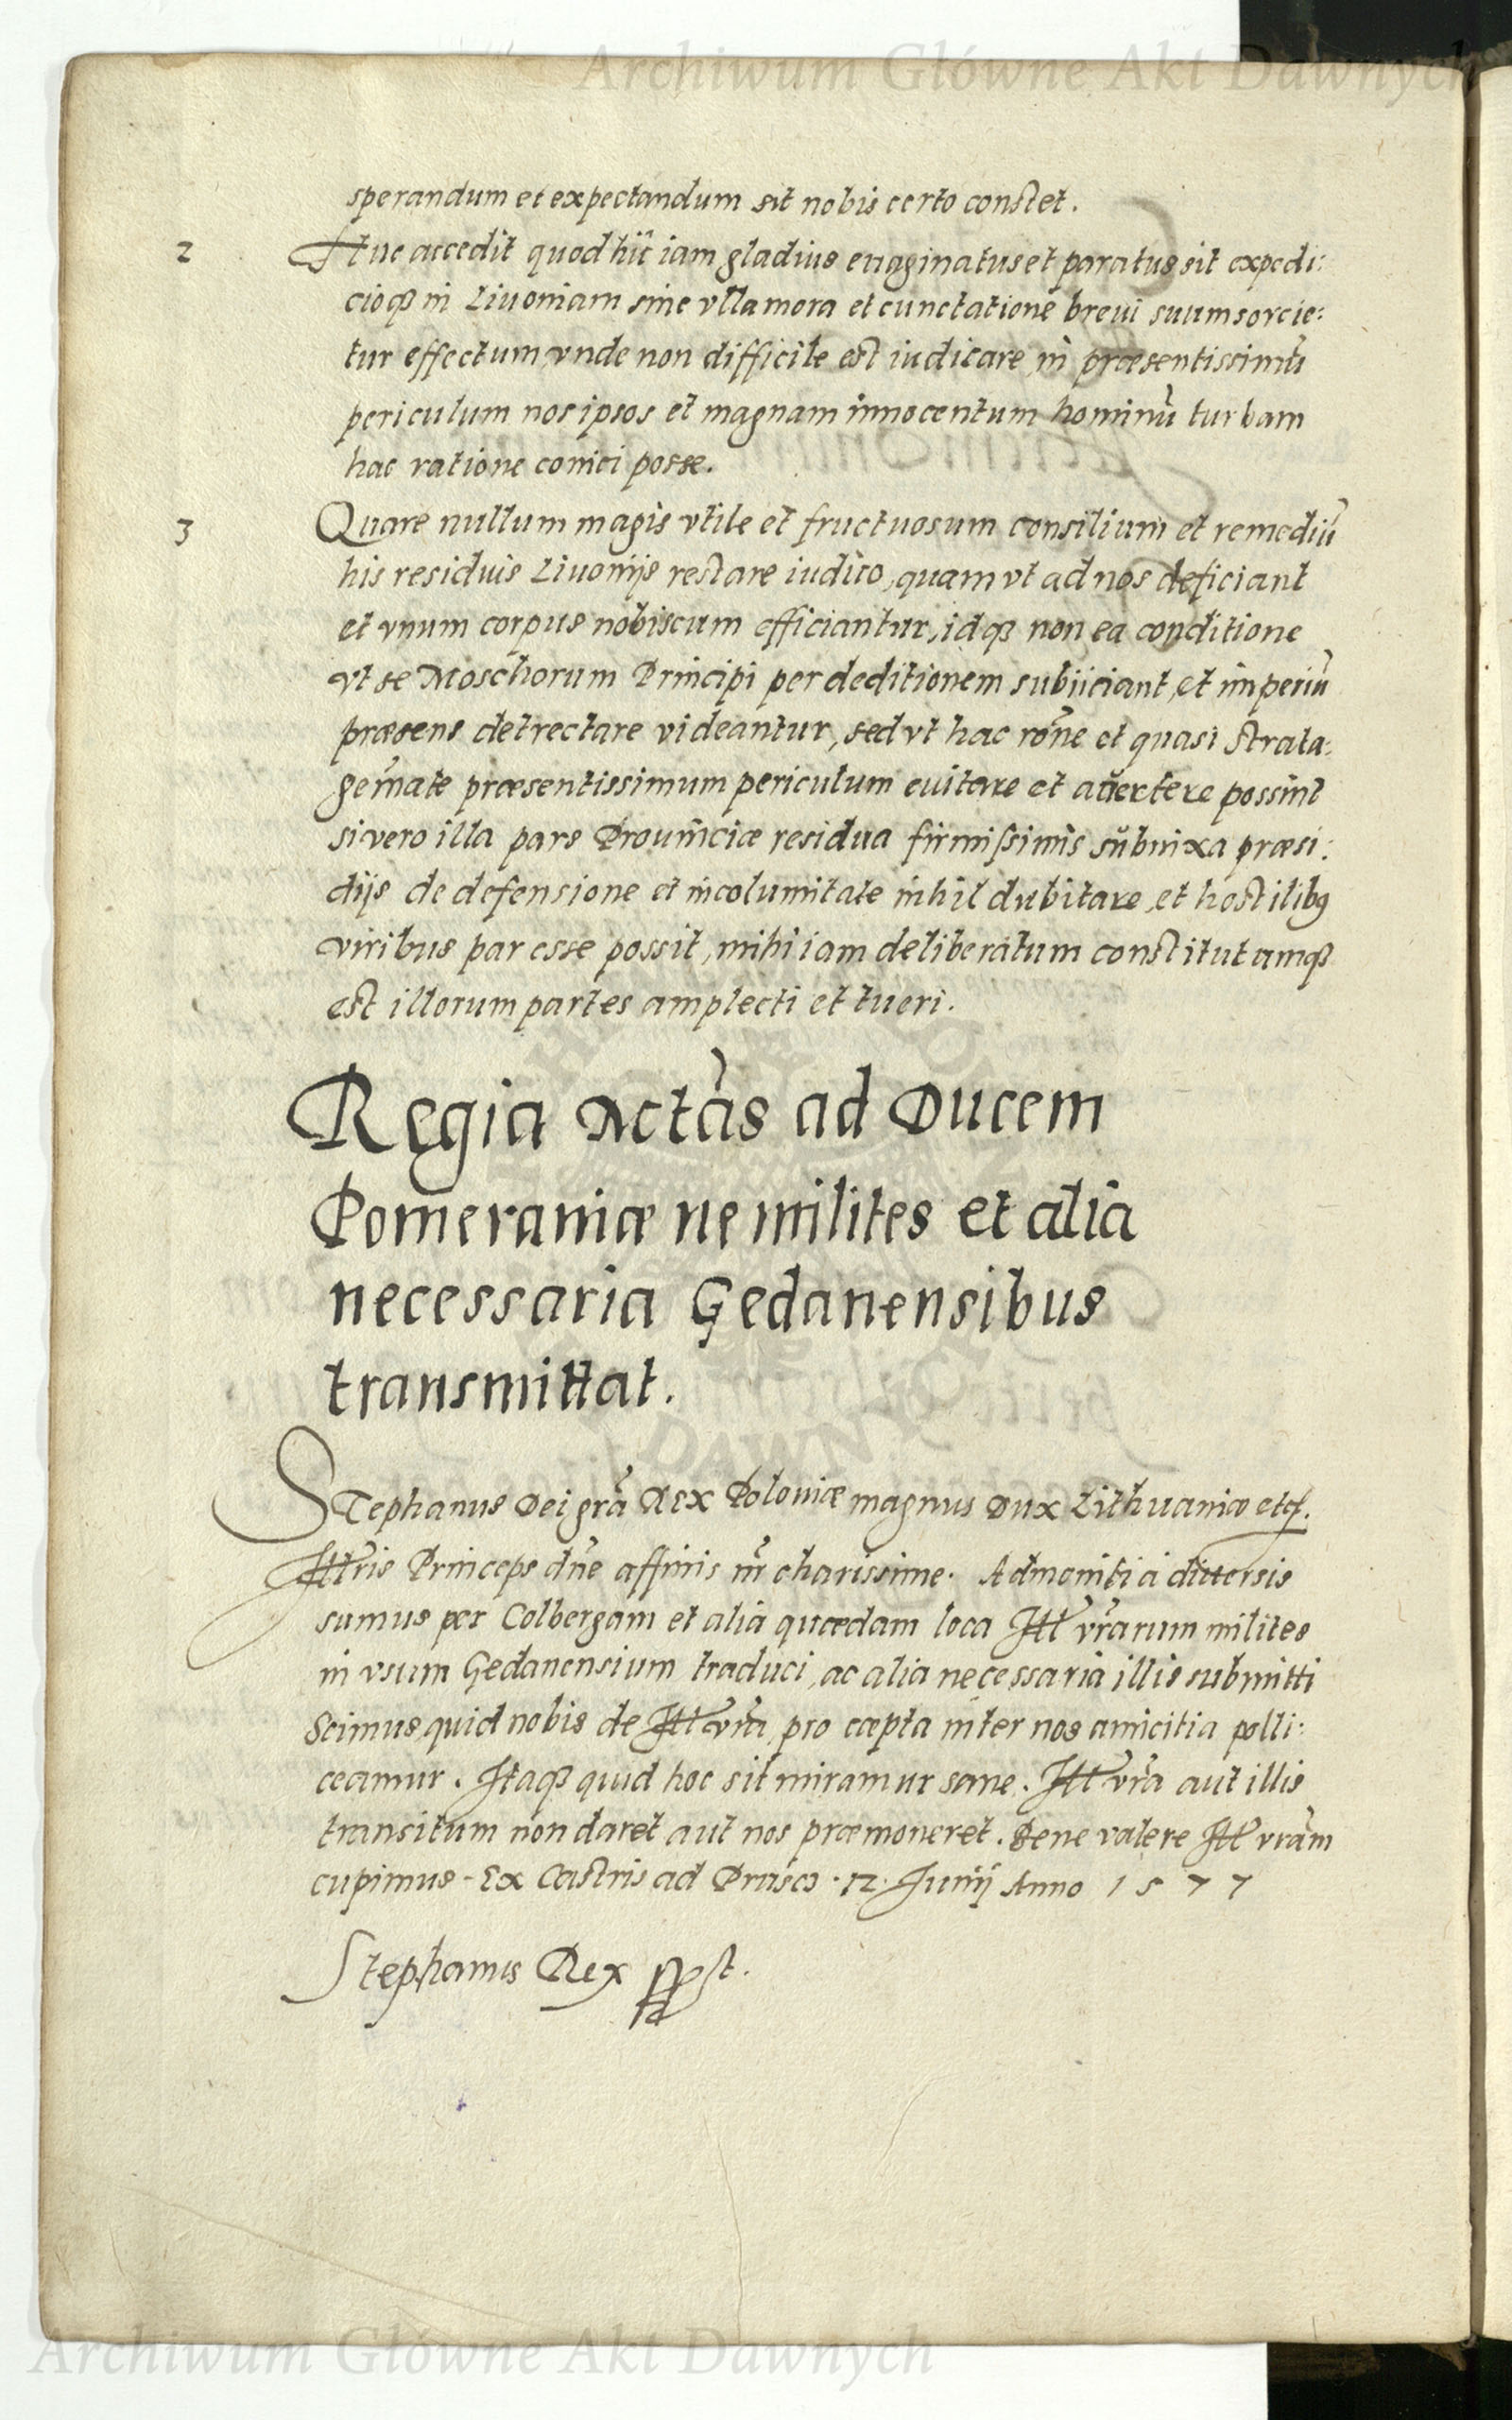 Archiwum Główne Akt Dawnych
sperandum et expectandum sit nobis certo constet.
2 Huc accedit quod hic iam gladius euaginatus et paratus sit expedi:
cioq̃ in Liuoniam sine vlla mora et cunctatione breui suum sorcie:
tur effectum, vnde non difficile est iudicare in præsentissimũ
periculum nos ipsos et magnam innocentum hominũ turbam
hac ratione conijci posse.
3 Quare nullum magis vtile et fructuosum consilium et remediũ
his residuis Liuonijs restare iudico, quam vt ad nos deficiant
et vnum corpus nobiscum efficiantur, idq̃ non ea conditione
vt se Moschorum Principi per deditionem subijciant, et imperiũ
præsens detrectare videantur, sed vt hac rõne et quasi strata:
gemate præsentissimum periculum euitare et auertere possint
si vero illa pars Prouinciæ residua firmissimis subnixa præsi:
dijs de defensione et incolumitate nihil dubitare, et hostilibꝰ
viribus par esse possit, mihi iam deliberatum constitutumq̃
est illorum partes amplecti et tueri.
Regia Mctãs ad Ducem
Pomeraniæ ne milites et alia
necessaria Gedanensibus
transmittat.
Stephanus Dei grã Rex Poloniæ magnus Dux Lithuaniæ etc.
Illris Princeps dñe affinis nr̃ charissime. Admoniti a diuersis
sumus per Colbergam et alia quædam loca Ill vrarum milites
in vsum Gedanensium traduci, ac alia necessaria illis submitti
Scimus quid nobis de Ill vrã, pro cæpta inter nos amicitia polli:
ceamur. Itaq̃ quid hoc sit miramur sane. Ill vrã aut illis
transitum non daret aut nos præmoneret. Bene valere Ill vrãm
cupimus. Ex Castris ad Prasc. 12. Junij Anno 1577
Stephanus Rex sst.
DAWNYCH
Archiwum Główne Akt Dawnych